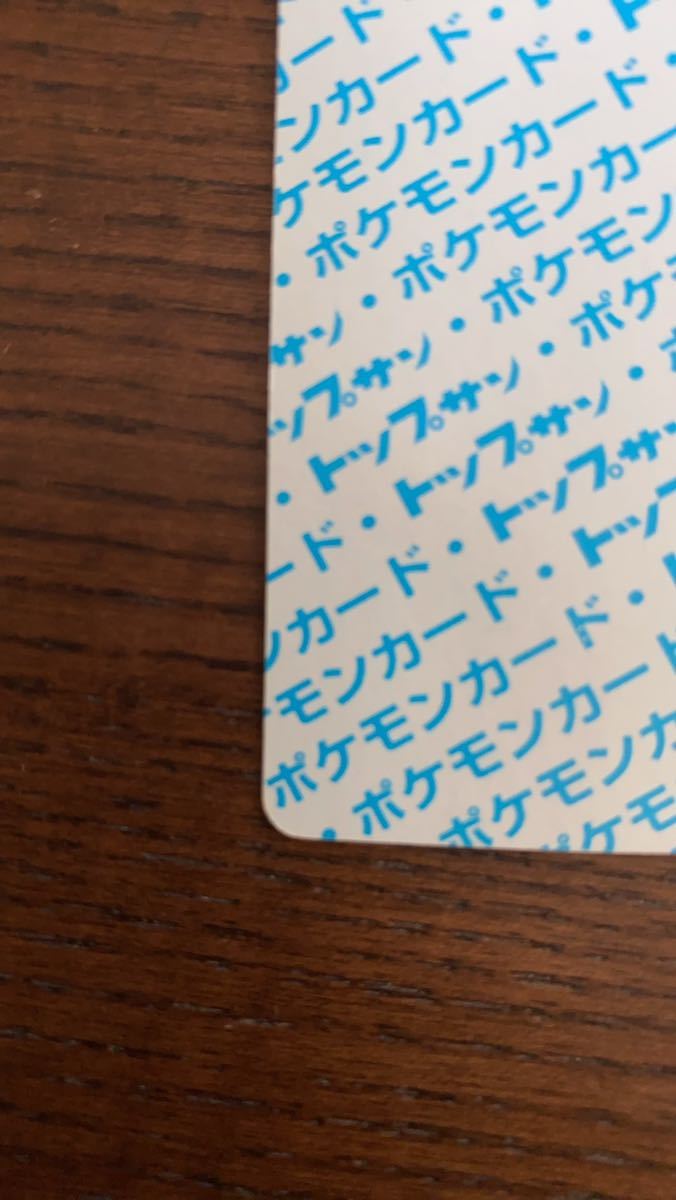 カード・ト
ンカード・ト
ケモンカード・
・ポケモンカード
サン・ポケモンカー
ップサン・ポケモン
・トップサン・ポケ
ード・トップサン・ポ
ンカード・トップサン
モンカード・トップ
ポケモンカード・
・ポケモンカード
ポケモンカ
ポケモ